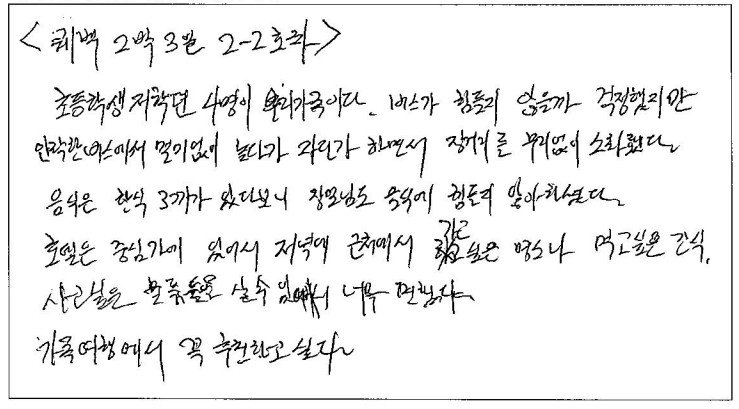 <퀘백 2박 3일 2-2호차>
초등학생 저학년 4명이 우리가족이다. 버스가 힘들지 않을까 걱정했지만
안락한 버스에서 멀미없이 놀다가 자다가 하면서 장거리를 무리없이 소화했다.
음식은 한식 3끼가 있다보니 장모님도 음식에 힘들지 않아하셨다.
호텔은 중심가에 있어서 저녁에 근처에서 가고싶은 명소나 먹고싶은 간식,
사고싶은 물품들을 살수 있어서 너무 편했다.
가족여행에서 꼭 추천하고 싶다.